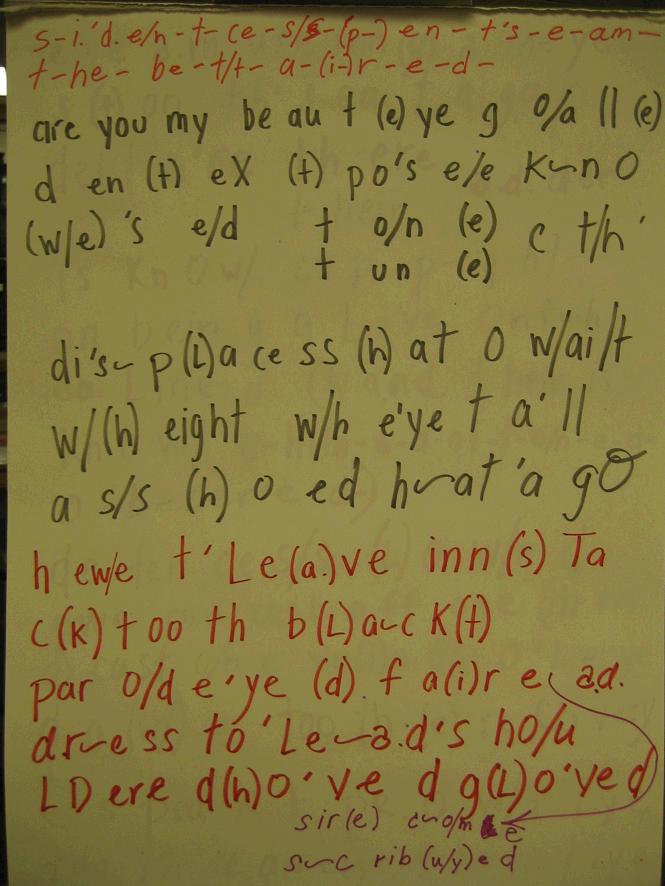 s-i.'d.e/n-t-ce-s/s-(p-)en-t's-e-am-
t-he-be-t/t-a-(i-)r-e-d-
are you my be au t (e) ye g o/a ll (e)
d en (t) eX (t) po's e/e K~n O
(w/e)'s e/d t o/n (e) c t/h'
t un (e)
di's~p(L)a ce ss (h) at O w/ai/t
w/(h) eight w/h e'ye t a'll
a s/s (h) o ed h~at 'a gO
h ew/e t'Le(a.)ve inn(s) Ta
c(k) t oo th b(L)a~c K(t)
par o/d e'ye (d). f a(i)r e a.d.
dr~e ss to 'Le~a.d's ho/u
LD ere d(h)o've d g(L)o'ved
sir(e) c~o/m e
s~c rib(u/y)e d